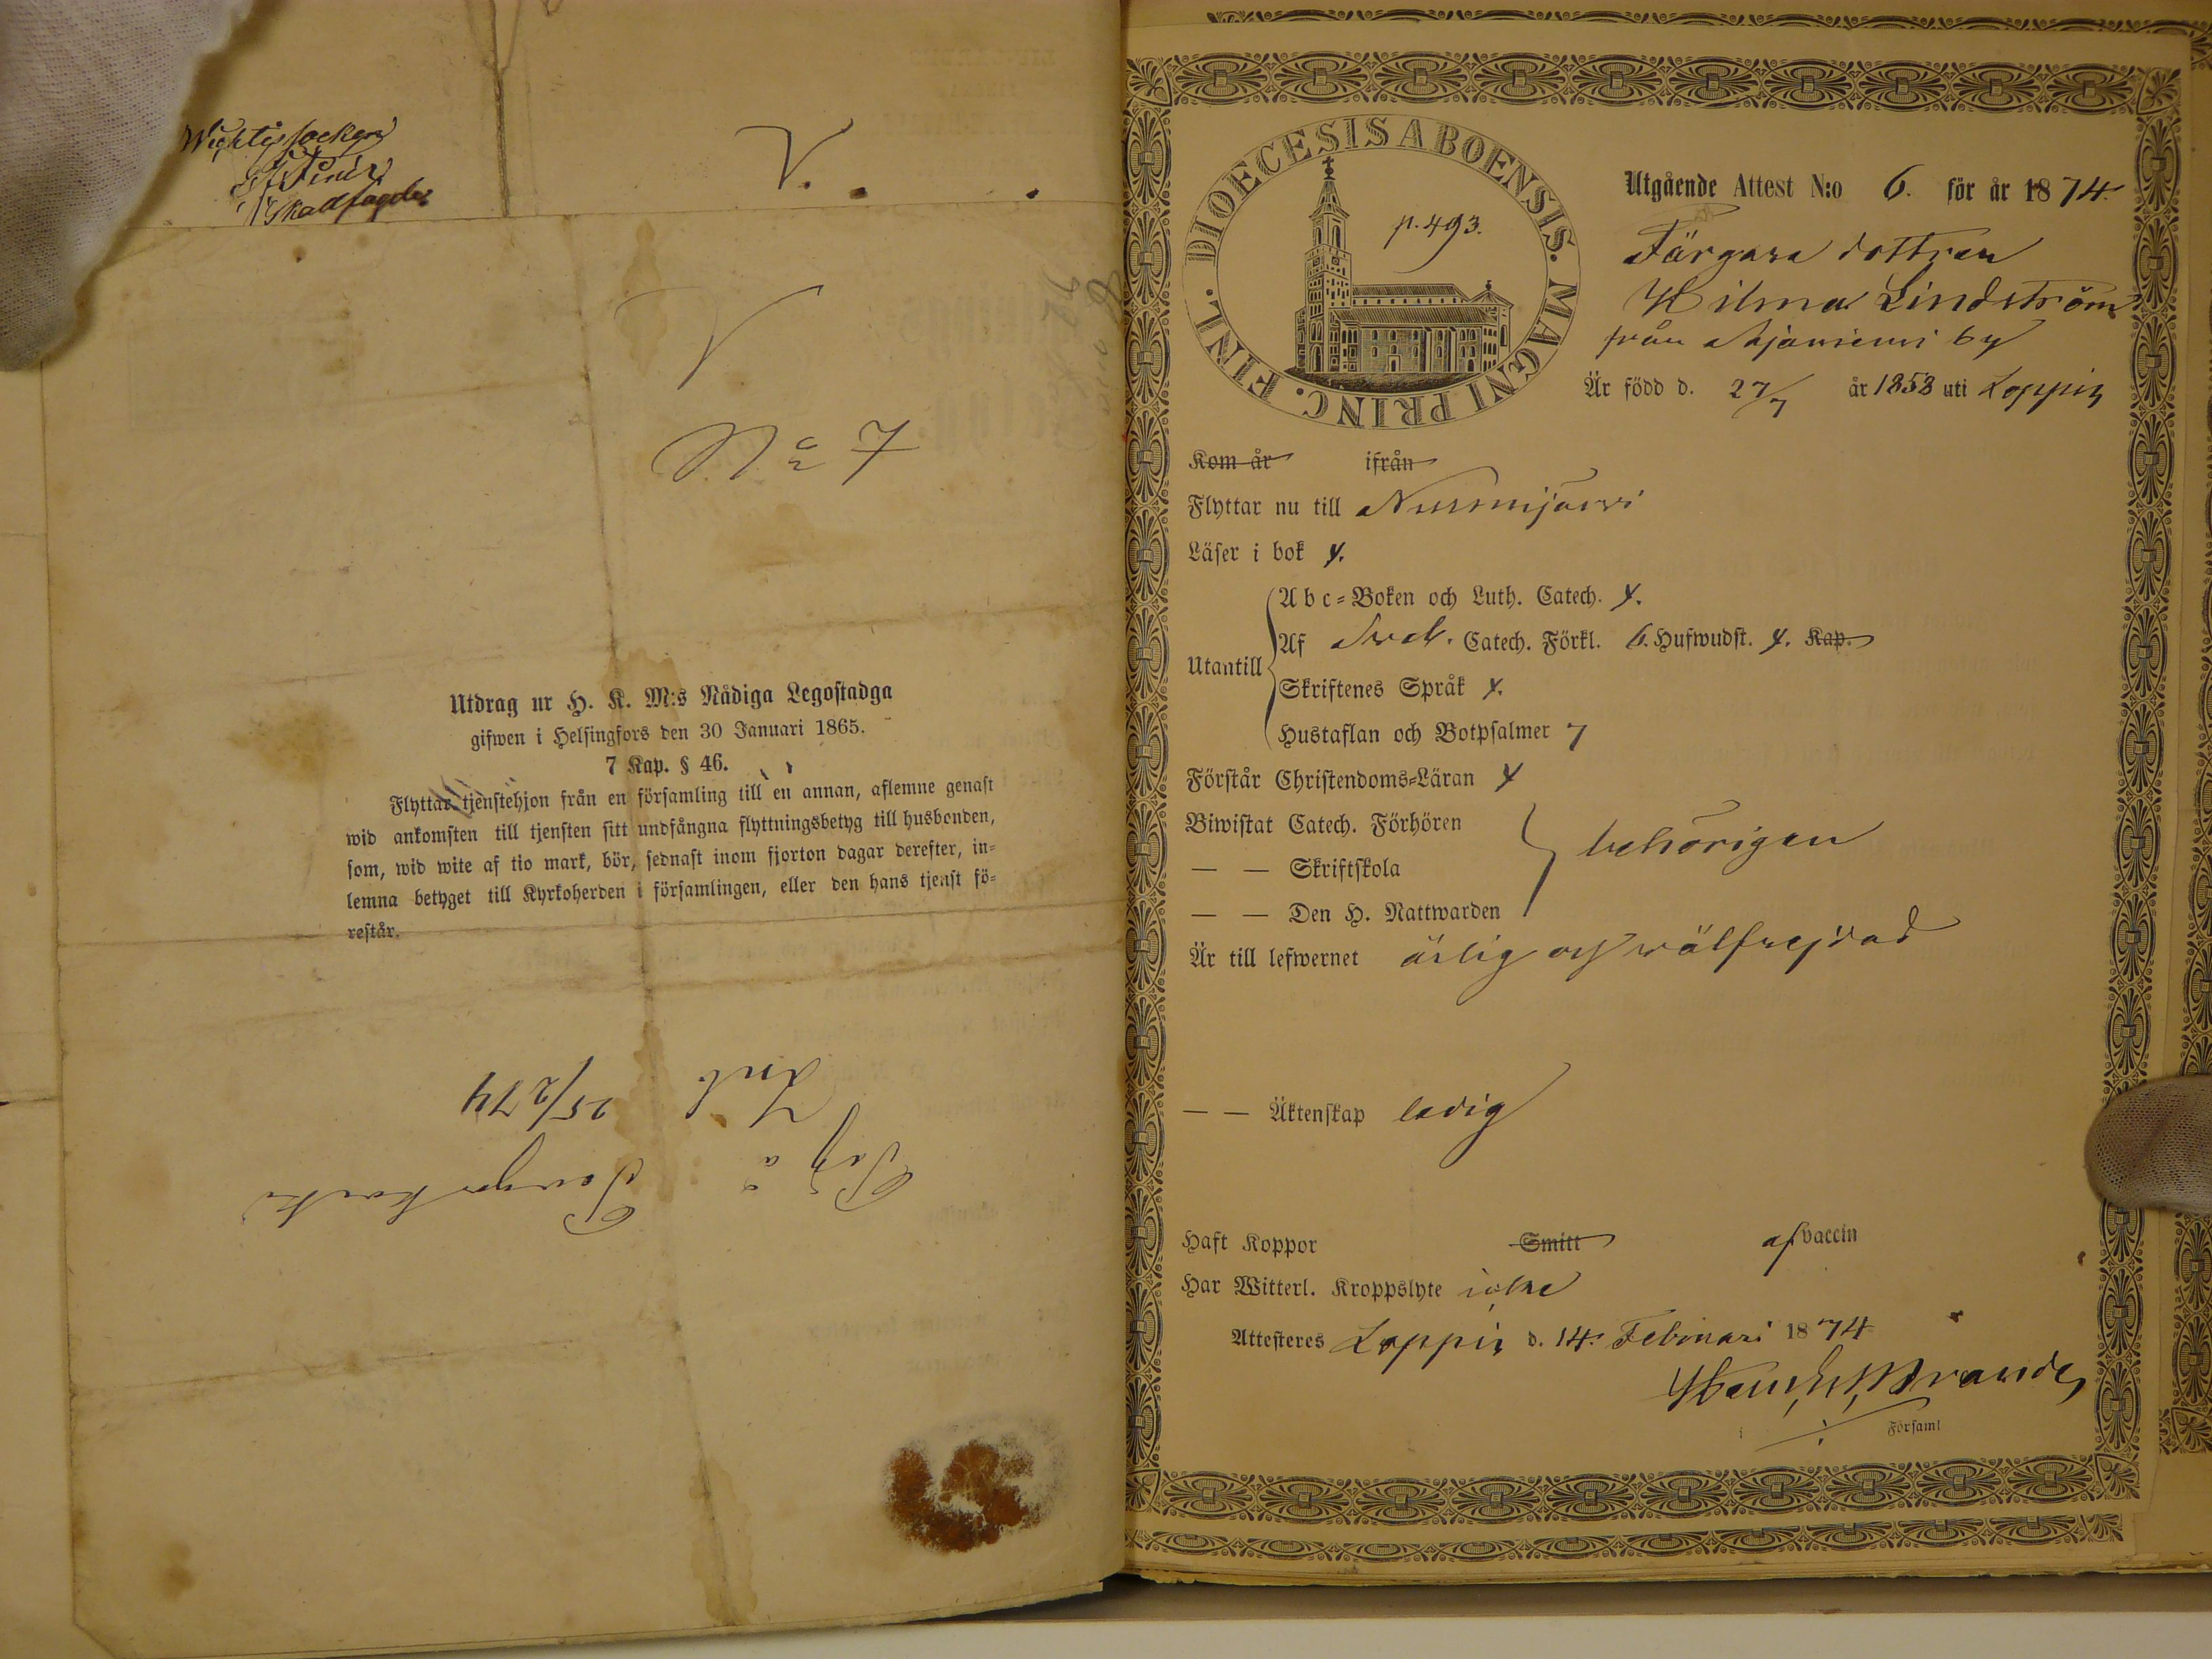 Wichtis socken
V.
No 7
Utdrag ur H. K. M:s Nådiga Legostadga
gifwen i Helsingfors den 30 Januari 1865.
7 Kap. § 46.
Flyttar tjenstehjon från en församling till en annan, aflemne genast
wid ankomsten till tjensten sitt undfångna flyttningsbetyg till husbonden,
som, wid wite af tio mark, bör, sednast inom fjorton dagar derefter, in=
lemna betyget till Kyrkoherden i församlingen, eller den hans tjenst fö=
restår.
25/2 74
FINL. DIOECESIS ABOENSIS. MAGNI PRINC.
p. 493.
Utgående Attest N:o 6. för år 1874.
Färgare dottren
Hilma Lindström
från by
Är född d. 27/7 år 1858 uti Loppis
Kom år ifrån
Flyttar nu till Nurmijärvi
Läser i bok
Abc=Boken och Luth. Catech.
Af Sveb. Catech. Förkl. 6. Hufwudst. Kap.
Utantill
Skriftenes Språk
Hustaflan och Botpsalmer 7
Förstår Christendoms=Läran
Biwistat Catech. Förhören
— — Skriftskola
behörigen
— — Den H. Nattwarden
Är till lefwernet ärlig och välfrejdad
— — Äktenskap ledig
Haft Koppor Smitt af vaccin
Har Witterl. Kroppslyte icke
Attesteres Loppis d. 14. Februari 1874
Församl